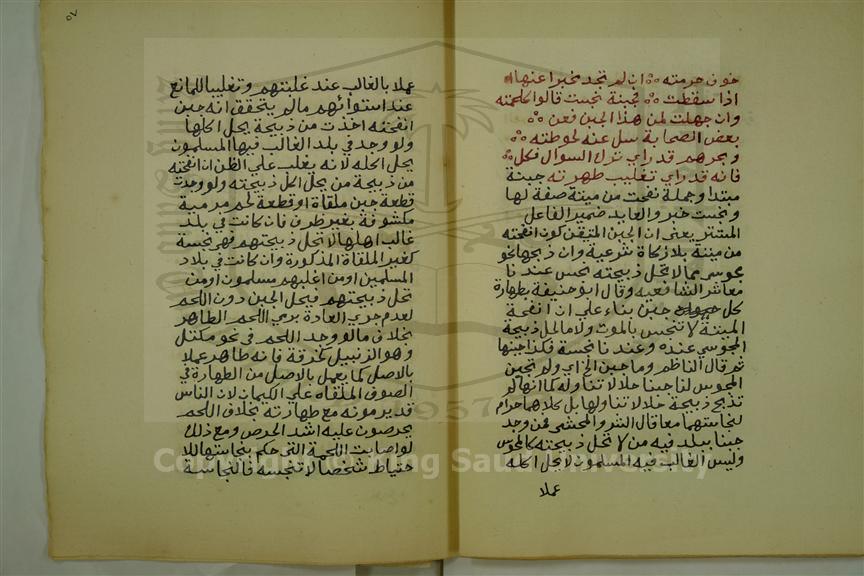 خوف حرمته ان لم تجد مخبرا عنها
اذا سقطت جبنة نجست قالوا كلحمته
وان جهلت لمن هذا الجبن فعن
بعض الصحابة سل عنه لحوطته
وبحرهم قد راي ترك السوال فكل
فانه قد راي تغليب طهرته جبنة
مبتدا وجملة نفحت من ميتة صفة لها
ونجست خبر والعايد ضمير الفاعل
المستتر يعني ان الجبن المتيقن كون انفحته
من ميتة بلا زكاة شرعية وان ذبحها نحو
مجوسي مما لا تحل ذبيحته نجس عندنا
معاشر الشافعية وقال ابو حنيفة بطهارة
كل جبن بناء علي ان انفحة
الميتة لا تنجس بالموت ولا ما لحل ذبيحة
المجوسي عنده وعندنا نجسة فكذا جبنها
ثم قال الناظم وما جبن الخ اي ولم تجبن
المجوس لنا جبنا حلالا تناوله كما انها لم
تذبح ذبيحة حلالا تناولها بل كلاهما حرام
لنجاستهما معا قال الشر والمحشي فمن وجد
جبنا ببلد فيه من لا تحل ذبيحته كالمجوس
وليس الغالب فيه المسلمون لا يحل اكله
عملا
٧٥
عملا بالغالب عند غلبتهم وتغليبا للمانع
عند استوائهم ما لم يتحقق انه جبن
انفحته اخذت من ذبيحة يحل اكلها
ولو وجد في بلد الغالب فيها المسلمون
يحل اكله لانه يغلب علي الظن ان انفحته
من ذبيحة من يحل اكل ذبيحته ولو وجدت
قطعة جبن ملقاة او قطعة لحم مرمية
مكشوفة بغير ظرف فان كانت في بلد
غالب اهلها لا تحل ذبيحتهم فهي نجسة
كغير الملقاة المذكورة وان كانت في بلاد
المسلمين او من اغلبهم مسلمون او من
تحل ذبيحتهم فيحل الجبن دون اللحم
لعدم جري العادة برمي اللحم الطاهر
بخلاف ما لو وجد اللحم في نحو مكتل
وهو الزنبيل كخرقة فانه طاهر عملا
بالاصل كما يعمل بالاصل من الطهارة في
الصوف الملقاه علي الكيمان لان الناس
قد يرمونه مع طهارته بخلاف اللحم
يحرصون عليه اشد الحرص ومع ذلك
لو اصابت اللحمة التي حكم بنجاستها للا
حتياط شخصا لا تنجسه فالنجاسة
Copyright © King Saud University
1957